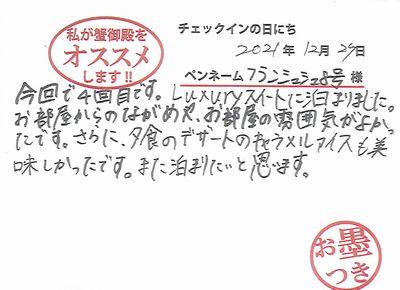 私が蟹御殿を
オススメ
します!!
チェックインの日にち
2021年12月29日
ペンネーム フランシュシュ8号 様
今回で4回目です。Luxuryスイートに泊まりました。
お部屋からのながめや、お部屋の雰囲気がよかっ
たです。さらに、夕食のデザートのキャラメルアイスも美
味しかったです。また泊まりたいと思います。
お墨
つき